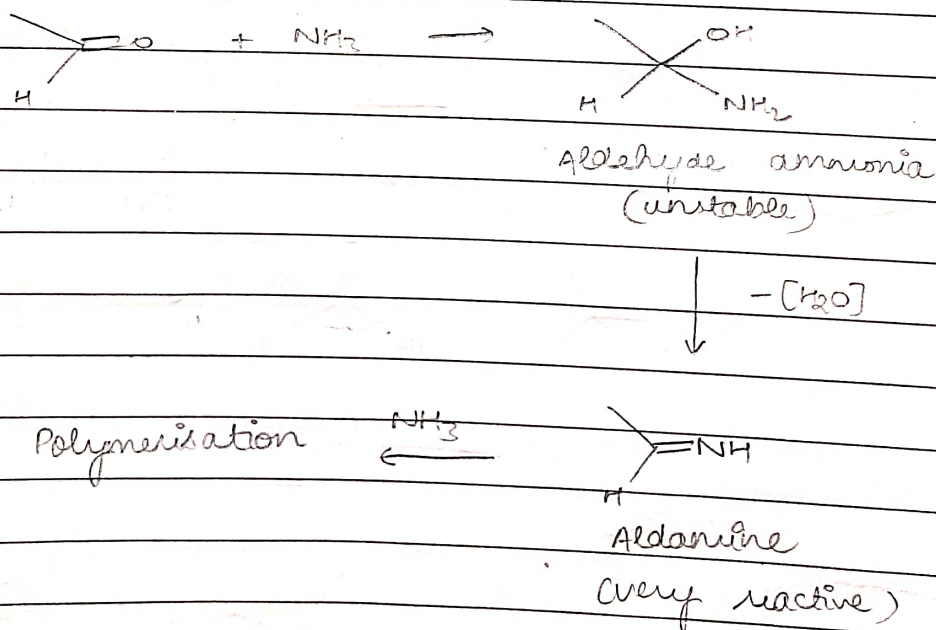 =O + NH3 → OH
H H NH2
Aldehyde ammonia
(unstable)
↓ -[H2O]
Polymerisation NH3 ← =NH
H
Aldamine
(very reactive)